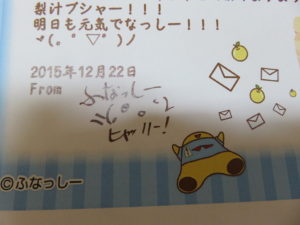 梨汁ブシャー！！！
明日も元気でなっしー！！！
ヾ(。゜▽゜)ノ
2015年12月22日
From
ふなっしー
ヒャッハー！
©ふなっしー